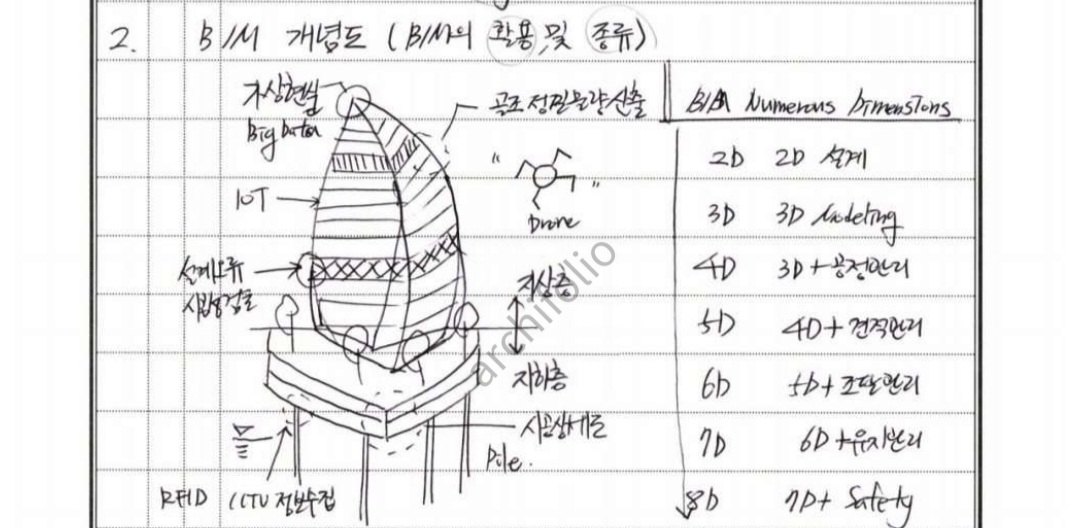 2. BIM 개념도 (BIM의 활용 및 종류)
가상현실
Big Data
골조 정밀물량산출
IOT
" Drone "
설계오류
시방검토
지상층
지하층
시공상세도
Pile.
RFID CCTV 정보수집
BIM Numerous Dimensions
2D 2D 설계
3D 3D Modeling
4D 3D + 공정관리
5D 4D + 견적관리
6D 5D + 조달관리
7D 6D + 유지관리
8D 7D + Safety
archifolio